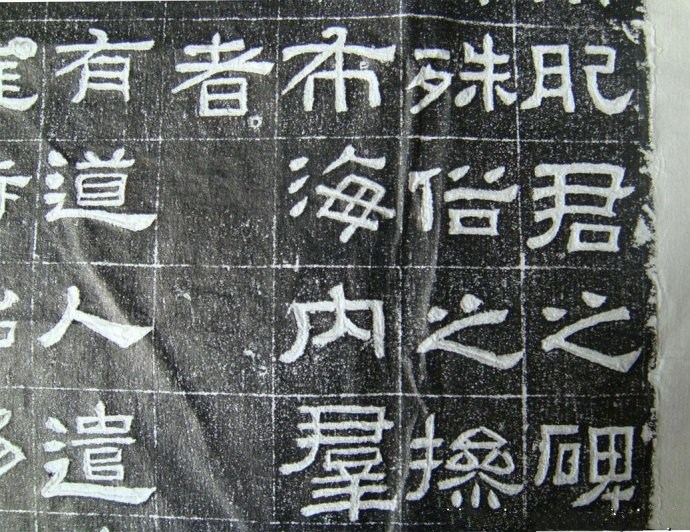 肥君之碑
殊俗之操
布海内羣
者。
有道人遣